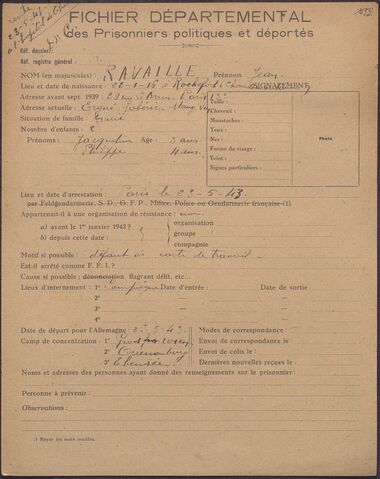 1939
FICHIER DÉPARTEMENTAL
des Prisonniers politiques et déportés
Réf. dossier:
Réf. registre général:
NOM (en majuscules): RAVAILLE Prénom Jean
Lieu et date de naissance: 22-1-16 à Rochefort
SIGNALEMENT
Adresse avant sept. 1939: Paris
Taille:
Adresse actuelle:
Cheveux:
Situation de famille: marié
Moustaches:
Nombre d'enfants: 2
Yeux:
Prénoms: Jacqueline Age: 3 ans
Nez:
Philippe 4 ans
Forme du visage:
Photo
Teint:
Signes particuliers:
Lieu et date d'arrestation: Paris le 23-5-43
par Feldgendarmerie, S.D., G.F.P., Milice, Police ou Gendarmerie française (1).
Appartenait-il à une organisation de résistance: non
a) avant le 1er janvier 1943? organisation
b) depuis cette date: groupe
compagnie
Motif si possible: carte de travail
Est-il arrêté comme F.F.I.?
Cause si possible: dénonciation flagrant délit, etc...
Lieux d'internement: 1° Compiègne Date d'entrée: Date de sortie:
2°
3°
4°
Date de départ pour l'Allemagne Modes de correspondance:
Camp de concentration: 1° Envoi de correspondance:
2° Envoi de colis le:
3° Ebensee Dernières nouvelles reçues le:
Noms et adresses des personnes ayant donné des renseignements sur le prisonnier:
Personne à prévenir:
Observations:
(1) Rayer les mots inutiles.